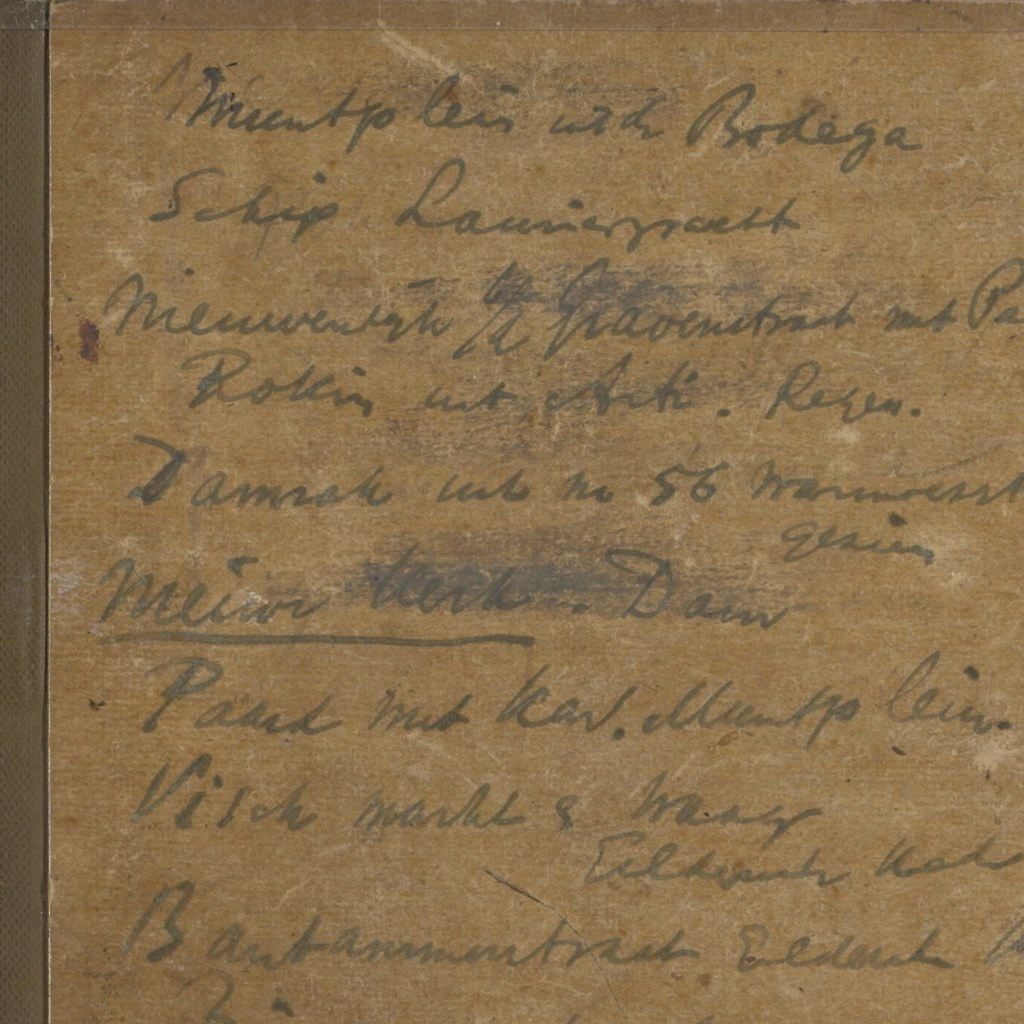 Muntplein uit de Bodega
Schip Lauriergracht
Nieuwendijk Gravenstraat met
Rokin uit Arti. Regen.
Damrak uit no 56 Warmoesstr
gezien
Nieuwe Kerk. Dam
Paard met Kar. Muntplein.
Visch markt & Waag
Bantammerstraat